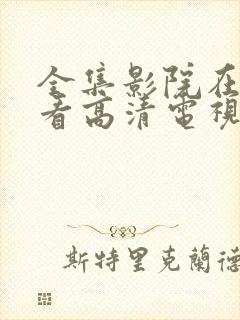 全集影院在
看高清電視
斯特里克蘭德